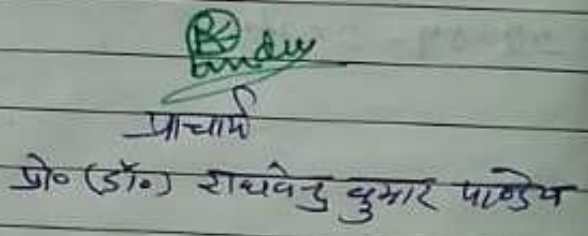 प्राचार्य
प्रो० (डॉ०) राघवेन्द्र कुमार पाण्डेय